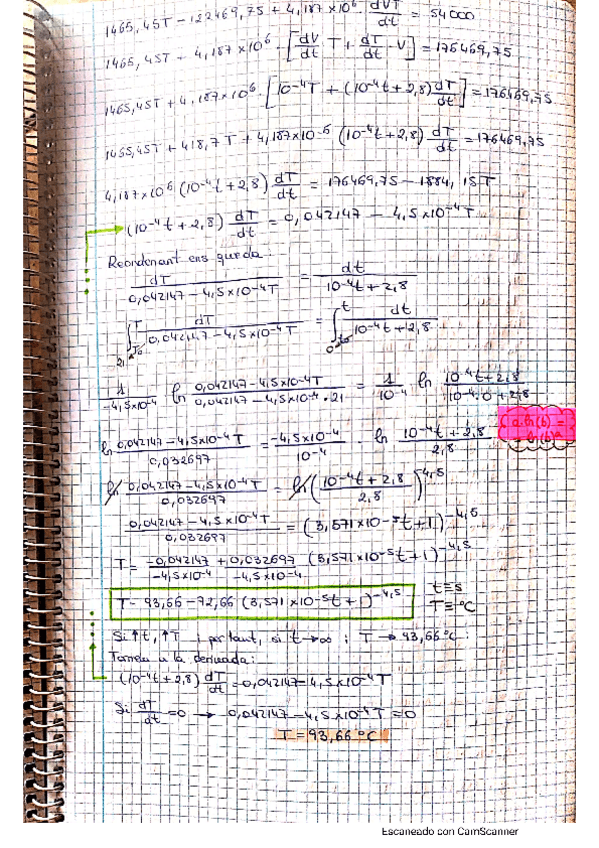 1465,45T - 122469,75 + 4,187×10⁶ · dVT/dt = 54000
1465,45T - 4,187×10⁶ · [dV/dt · T + dT/dt · V] = 176469,75
1465,45T + 4,187×10⁶ · [10⁻⁴T + (10⁻⁴t + 2,8) dT/dt] = 176469,75
1465,45T + 418,7T + 4,187×10⁻⁶ (10⁻⁴t + 2,8) dT/dt = 176469,75
4,187×10⁶ (10⁻⁴t + 2,8) dT/dt = 176469,75 - 1884,15T
(10⁻⁴t + 2,8) dT/dt = 0,042147 - 4,5×10⁻⁴T
Reordenant ens queda:
dT/(0,042147 - 4,5×10⁻⁴T) = dt/(10⁻⁴t + 2,8)
∫ 21=T₀ T dT/(0,042147 - 4,5×10⁻⁴T) = ∫ 0=t₀ t dt/(10⁻⁴t + 2,8)
1/(-4,5×10⁻⁴) ln (0,042147 - 4,5×10⁻⁴T)/(0,042147 - 4,5×10⁻⁴·21) = 1/10⁻⁴ ln (10⁻⁴t + 2,8)/(10⁻⁴·0 + 2,8)
ln (0,042147 - 4,5×10⁻⁴T)/0,032697 = (-4,5×10⁻⁴)/10⁻⁴ · ln (10⁻⁴t + 2,8)/2,8
a·ln(b) =
ln(b)ᵃ
ln (0,042147 - 4,5×10⁻⁴T)/0,032697 = ln ((10⁻⁴t + 2,8)/2,8)⁻⁴,⁵
(0,042147 - 4,5×10⁻⁴T)/0,032697 = (3,571×10⁻⁵t + 1)⁻⁴,⁵
T = -0,042147/-4,5×10⁻⁴ + 0,032697/-4,5×10⁻⁴ (3,571×10⁻⁵t + 1)⁻⁴,⁵
T = 93,66 - 72,66 (3,571×10⁻⁵t + 1)⁻⁴,⁵
t = s
T = °C
Si ↑t, ↑T i per tant, si t → ∞ ; T → 93,66 °C
Tornem a la derivada:
(10⁻⁴t + 2,8) dT/dt = 0,042147 - 4,5×10⁻⁴T
Si dT/dt = 0 → 0,042147 - 4,5×10⁻⁴T = 0
T = 93,66 °C
Escaneado con CamScanner